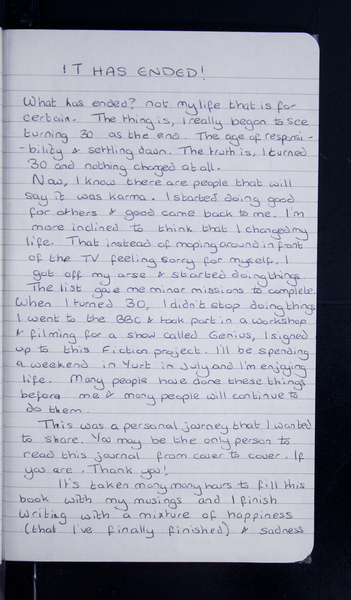 IT HAS ENDED!
What has ended? not my life that is for
certain. The thing is, I really began to see
turning 30 as the end. The age of responsi-
-bility & settling down. The truth is, I turned
30 and nothing changed at all.
Now, I know there are people that will
say it was karma. I started doing good
for others & good came back to me. I'm
more inclined to think that I changed my
life. That instead of moping around in front
of the TV feeling sorry for myself, I
got off my arse & started doing things
The list gave me minor missions to complete.
When I turned 30, I didn't stop doing things
I went to the BBC & took part in a workshop
& filming for a show called Genius, I signed
up to this Fiction project. I'll be spending
a weekend in Yurt in July and I'm enjoying
life. Many people have done these things
before me & many people will continue to
do them.
This was a personal journey that I wanted
to share. You may be the only person to
read this journal from cover to cover. If
you are. Thank you!
It's taken many many hours to fill this
book with my musings and I finish
writing with a mixture of happiness
(that I've finally finished) & sadness